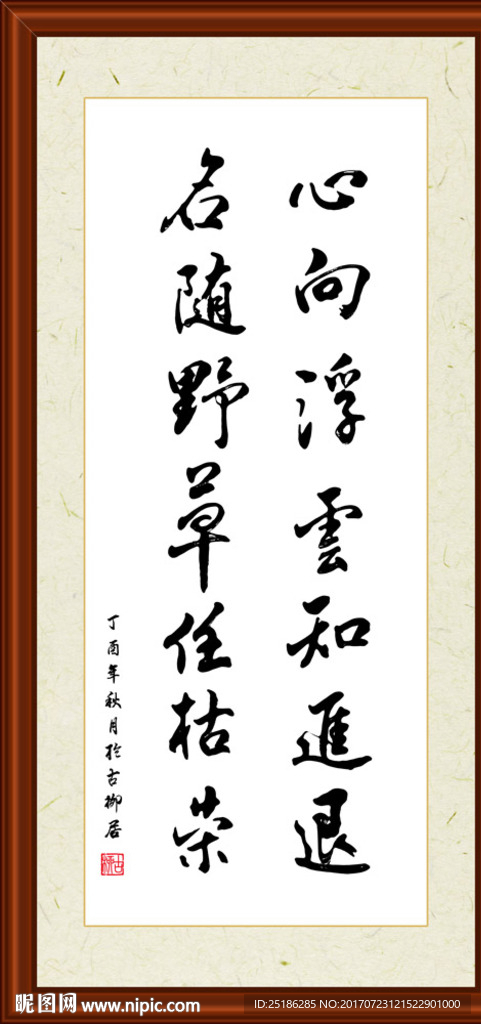 心向浮雲知進退
名随野草任枯荣
丁酉年秋月於古柳居
昵图网 www.nipic.com
ID:25186285 NO:20170723121522901000